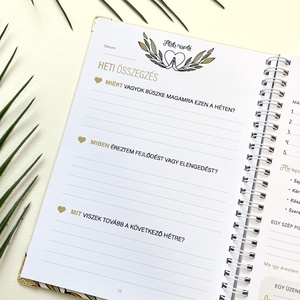 Dátum:
Heti napló
HETI ÖSSZEGZÉS
MIÉRT VAGYOK BÜSZKE MAGAMRA EZEN A HÉTEN?
MIBEN ÉREZTEM FEJLŐDÉST VAGY ELENGEDÉST?
MIT VISZEK TOVÁBB A KÖVETKEZŐ HÉTRE?
1.
2.
3.
4.
5.
EGY SZÉP
EGY ÜZEN